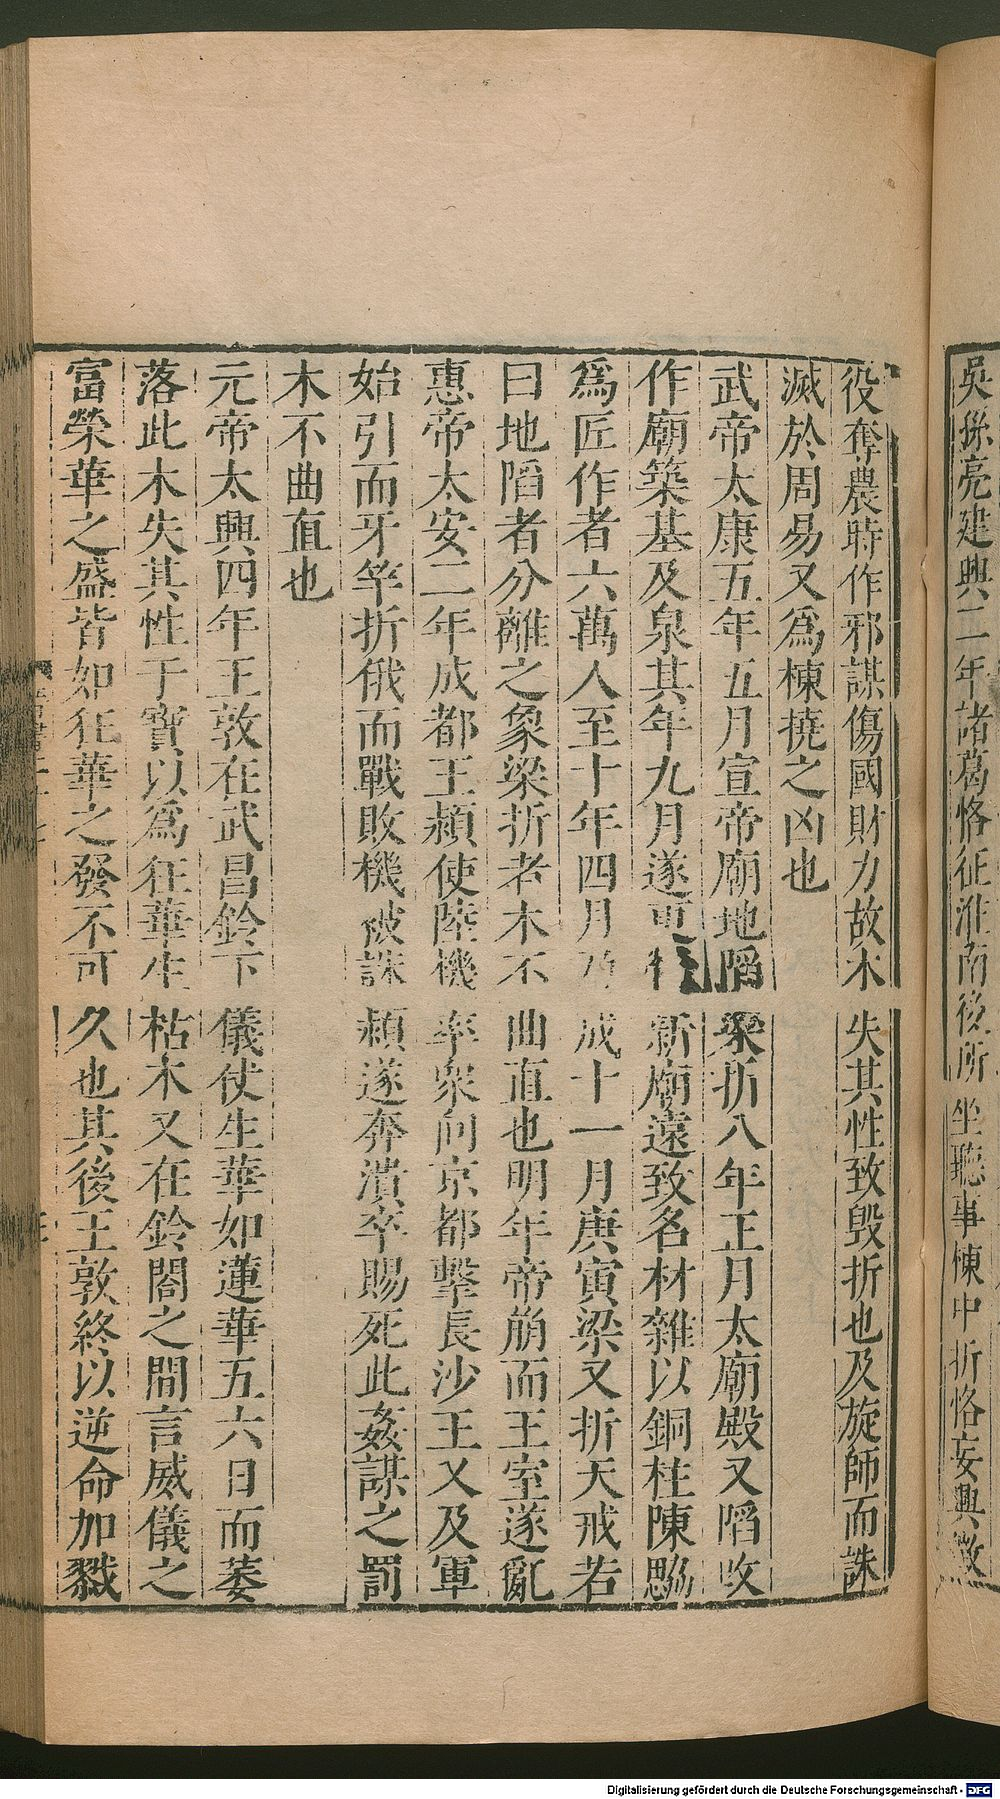 吳孫亮建興二年諸葛恪征淮南後所坐聽事棟中折恪妄興徵
役奪農時作邪謀傷國財力故木失其性致毀折也及旋師而誅
滅於周易又爲棟撓之凶也
武帝太康五年五月宣帝廟地陷梁折八年正月太廟殿又陷改
作廟築基及泉其年九月遂更 新廟遠致名材雜以銅柱陳勰
爲匠作者六萬人至十年四月乃成十一月庚寅梁又折天戒若
曰地陷者分離之象梁折者木不曲直也明年帝崩而王室遂亂
惠帝太安二年成都王穎使陸機率衆向京都擊長沙王乂及軍
始引而牙竿折俄而戰敗機被誅穎遂奔潰卒賜死此姦謀之罰
木不曲直也
元帝太興四年王敦在武昌鈴下儀仗生華如蓮華五六日而萎
落此木失其性干寶以爲狂華生枯木又在鈴閣之間言威儀之
富榮華之盛皆如狂華之發不可久也其後王敦終以逆命加戮
Digitalisierung gefördert durch die Deutsche Forschungsgemeinschaft - DFG